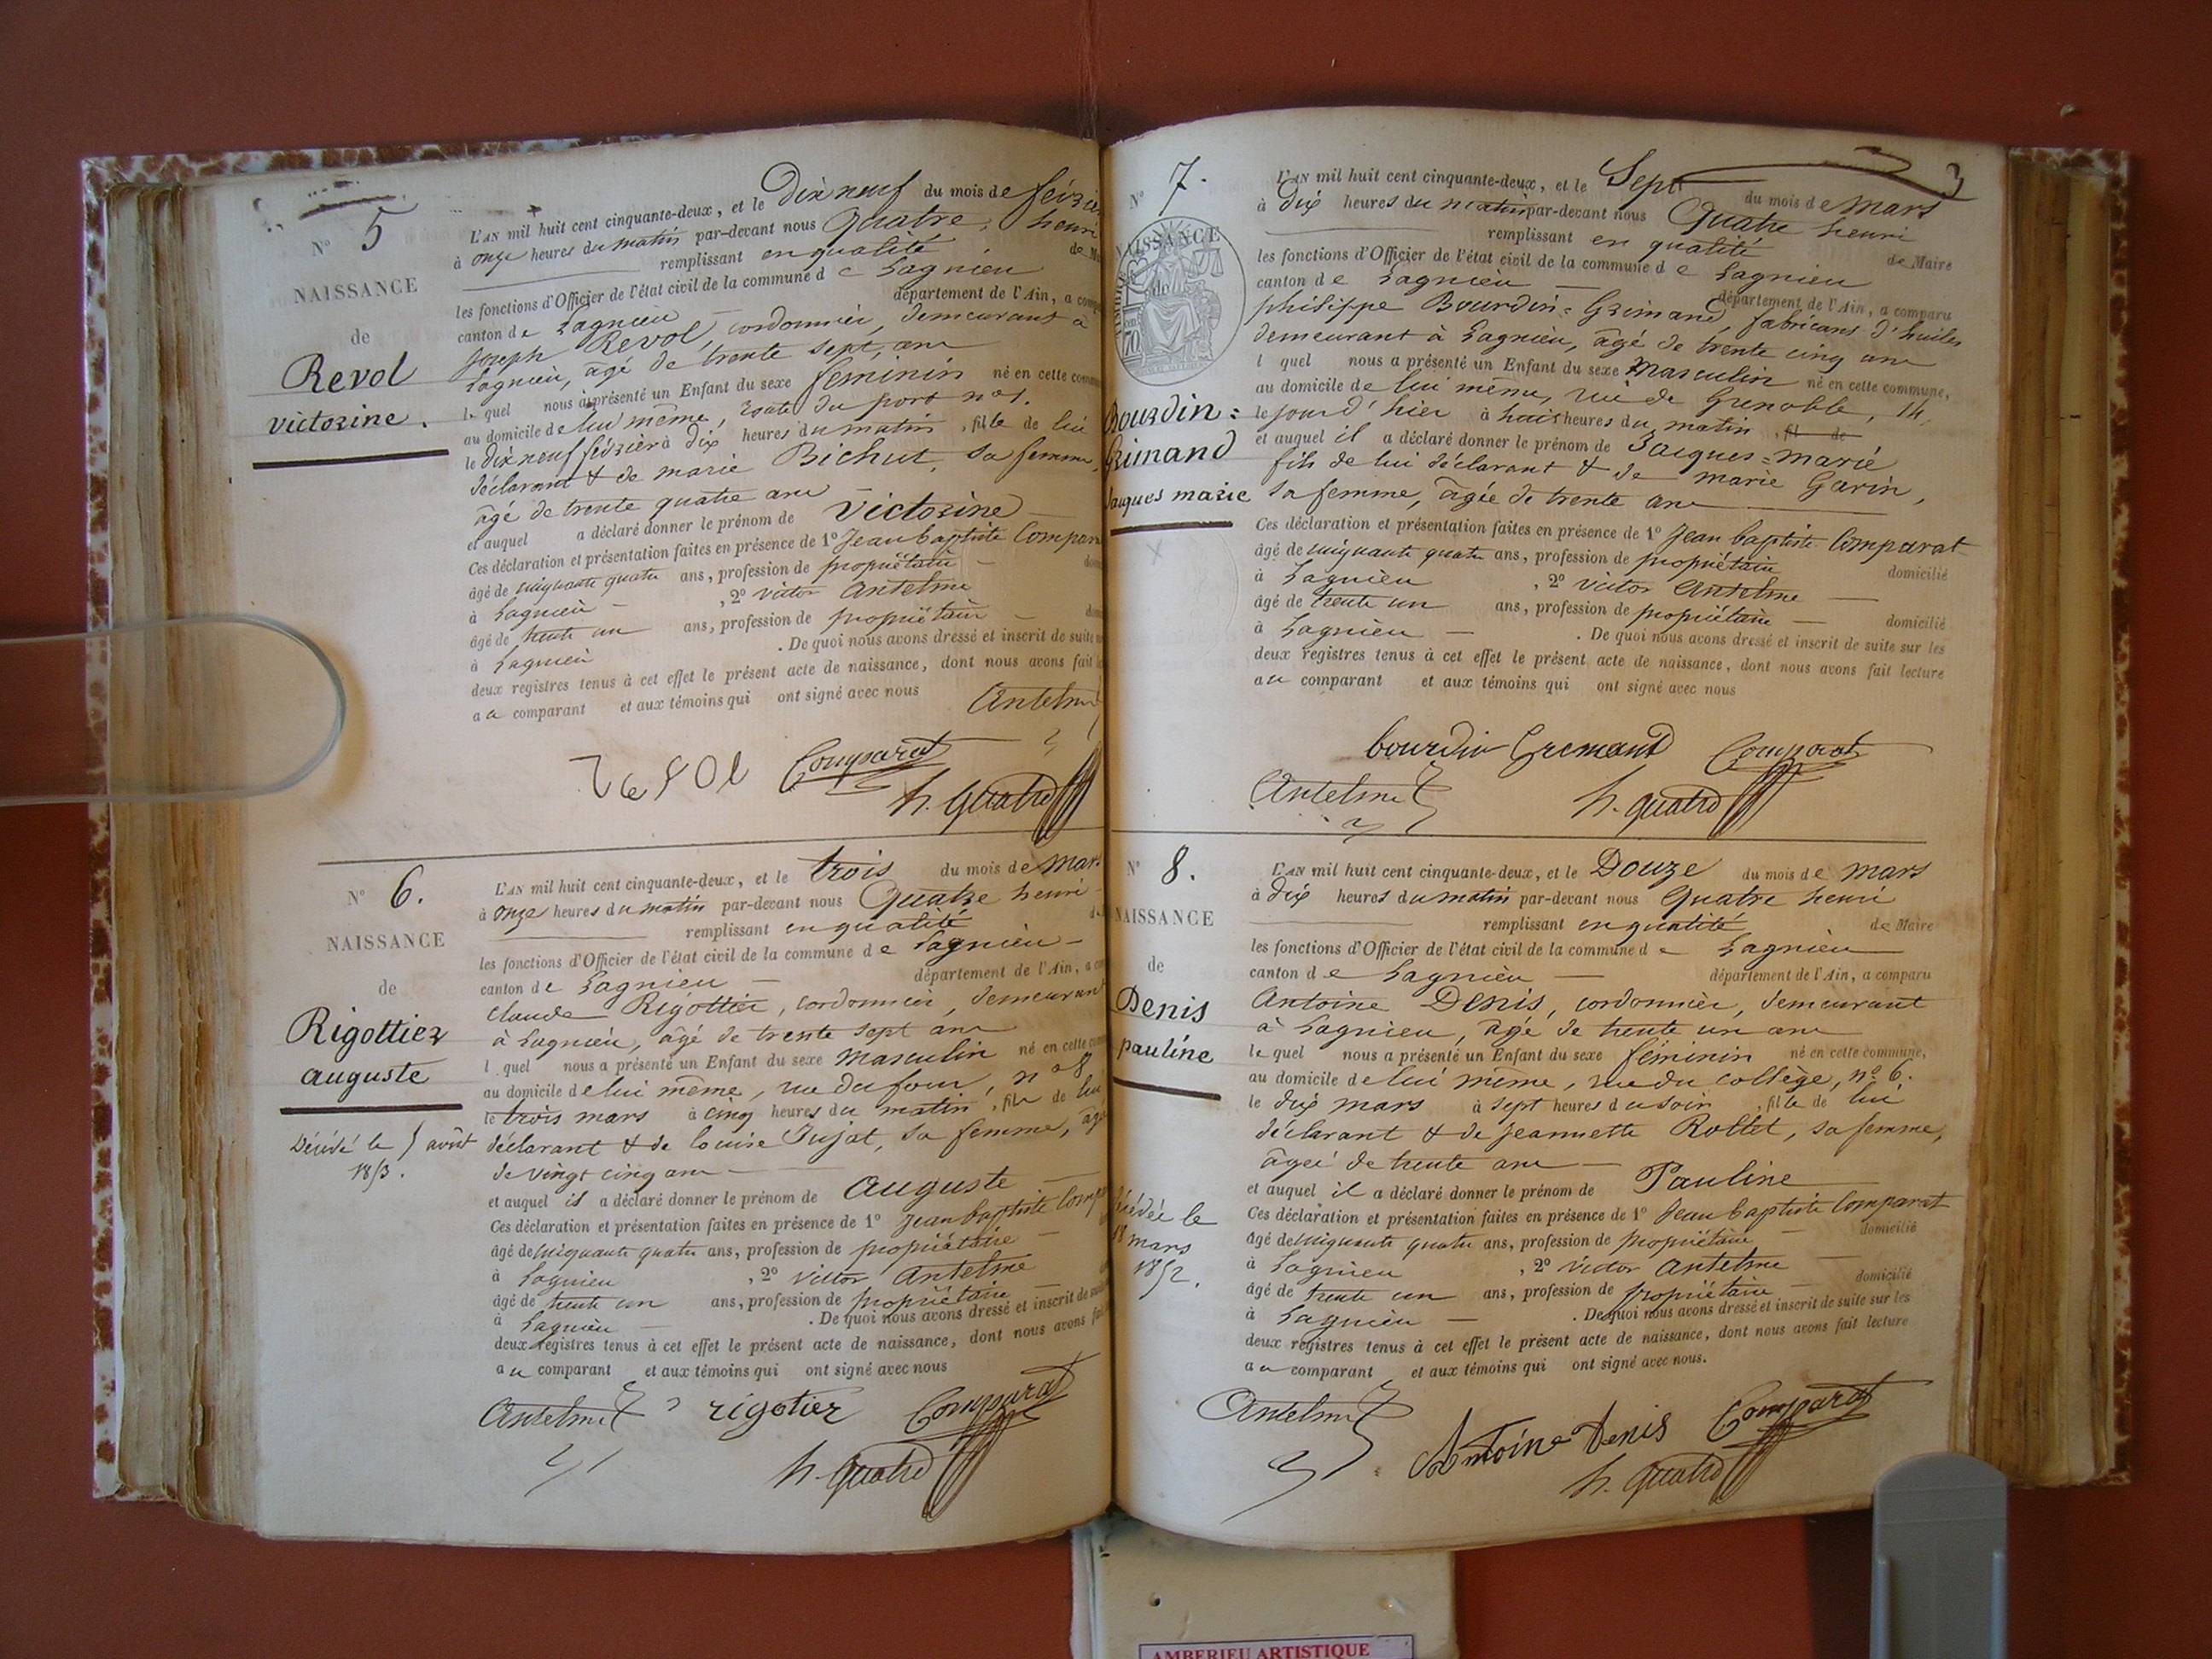 N° 5
NAISSANCE
de
Revol
victorine.
L'AN mil huit cent cinquante-deux, et le Dix neuf du mois de février
à onze heures du matin par-devant nous Quatre, henri
remplissant en qualité de
les fonctions d'Officier de l'état civil de la commune de Lagnieu
canton de Lagnieu département de l'Ain, a
joseph Revol, cordonnier, demeurant à
Lagnieu, âgé de trente sept ans
le quel nous a présenté un Enfant du sexe féminin né en cette
au domicile de lui même, route du port n° 1.
le dix neuf février à dix heures du matin, fille de lui
déclarant & de marie Bichut, sa femme,
âgé de trente quatre ans
et auquel a déclaré donner le prénom de Victorine
Ces déclaration et présentation faites en présence de 1° Jean baptiste Comparat
âgé de cinquante quatre ans, profession de propriétaire
à Lagnieu, 2° victor Antelme
âgé de trente un ans, profession de propriétaire
à Lagnieu. De quoi nous avons dressé et inscrit de suite
deux registres tenus à cet effet le présent acte de naissance, dont nous avons fait
au comparant et aux témoins qui ont signé avec nous
Antelme
revol Comparat
h. Quatre
N° 6.
NAISSANCE
de
Rigottier
auguste
Décédé le 5 août
1853.
L'AN mil huit cent cinquante-deux, et le trois du mois de mars
à onze heures du matin par-devant nous Quatre henri
remplissant en qualité
les fonctions d'Officier de l'état civil de la commune de Lagnieu
canton de Lagnieu département de l'Ain, a
claude Rigottier, cordonnier, demeurant
à Lagnieu, âgé de trente sept ans
l quel nous a présenté un Enfant du sexe masculin né en cette
au domicile de lui même, rue du four, n° 8
le trois mars à cinq heures du matin, fils de lui
déclarant & de louise Jujat, sa femme, âgé
de vingt cinq ans
et auquel il a déclaré donner le prénom de auguste
Ces déclaration et présentation faites en présence de 1° jean baptiste
âgé de cinquante quatre ans, profession de propriétaire
à Lagnieu, 2° victor Antelme
âgé de trente un ans, profession de propriétaire
à Lagnieu. De quoi nous avons dressé et inscrit de
deux registres tenus à cet effet le présent acte de naissance, dont nous avons
au comparant et aux témoins qui ont signé avec nous
Antelme rigotier Comparat
h. Quatre
3
N° 7.
NAISSANCE
de
Bourdin=
Grimand
Jaques marie
L'AN mil huit cent cinquante-deux, et le Sept du mois de mars
à dix heures du matin par-devant nous Quatre henri
remplissant en qualité de Maire
les fonctions d'Officier de l'état civil de la commune de Lagnieu
canton de Lagnieu département de l'Ain, a comparu
philippe Bourdin=Grimand, fabricant d'huiles
demeurant à Lagnieu, âgé de trente cinq ans
l quel nous a présenté un Enfant du sexe Masculin né en cette commune,
au domicile de lui même, rue de Grenoble, 14,
le jour d'hier à huit heures du matin, fil de
et auquel il a déclaré donner le prénom de Jacques=marie
fils de lui déclarant & de marie Garin,
sa femme, âgée de trente ans
Ces déclaration et présentation faites en présence de 1° Jean baptiste Comparat
âgé de cinquante quatre ans, profession de propriétaire domicilié
à Lagnieu, 2° victor Antelme
âgé de trente un ans, profession de propriétaire domicilié
à Lagnieu. De quoi nous avons dressé et inscrit de suite sur les
deux registres tenus à cet effet le présent acte de naissance, dont nous avons fait lecture
au comparant et aux témoins qui ont signé avec nous
bourdin Gremand Comparat
Antelme h. quatre
N° 8.
NAISSANCE
de
Denis
pauline
Décédée le
18 mars
1852.
L'AN mil huit cent cinquante-deux, et le Douze du mois de mars
à dix heures du matin par-devant nous Quatre henri
remplissant en qualité de Maire
les fonctions d'Officier de l'état civil de la commune de Lagnieu
canton de Lagnieu département de l'Ain, a comparu
Antoine Denis, cordonnier, demeurant
à Lagnieu, âgé de trente un ans
le quel nous a présenté un Enfant du sexe féminin né en cette commune,
au domicile de lui même, rue du collège, n° 6.
le dix mars à sept heures du soir, fille de lui
déclarant & de jeannette Rollet, sa femme,
âgée de trente ans
et auquel il a déclaré donner le prénom de Pauline
Ces déclaration et présentation faites en présence de 1° Jean baptiste Comparat
âgé de cinquante quatre ans, profession de propriétaire domicilié
à Lagnieu, 2° victor Antelme
âgé de trente un ans, profession de propriétaire domicilié
à Lagnieu. De quoi nous avons dressé et inscrit de suite sur les
deux registres tenus à cet effet le présent acte de naissance, dont nous avons fait lecture
au comparant et aux témoins qui ont signé avec nous.
Antelme Antoine Denis Comparat
h. quatre
AMBERIEU ARTISTIQUE